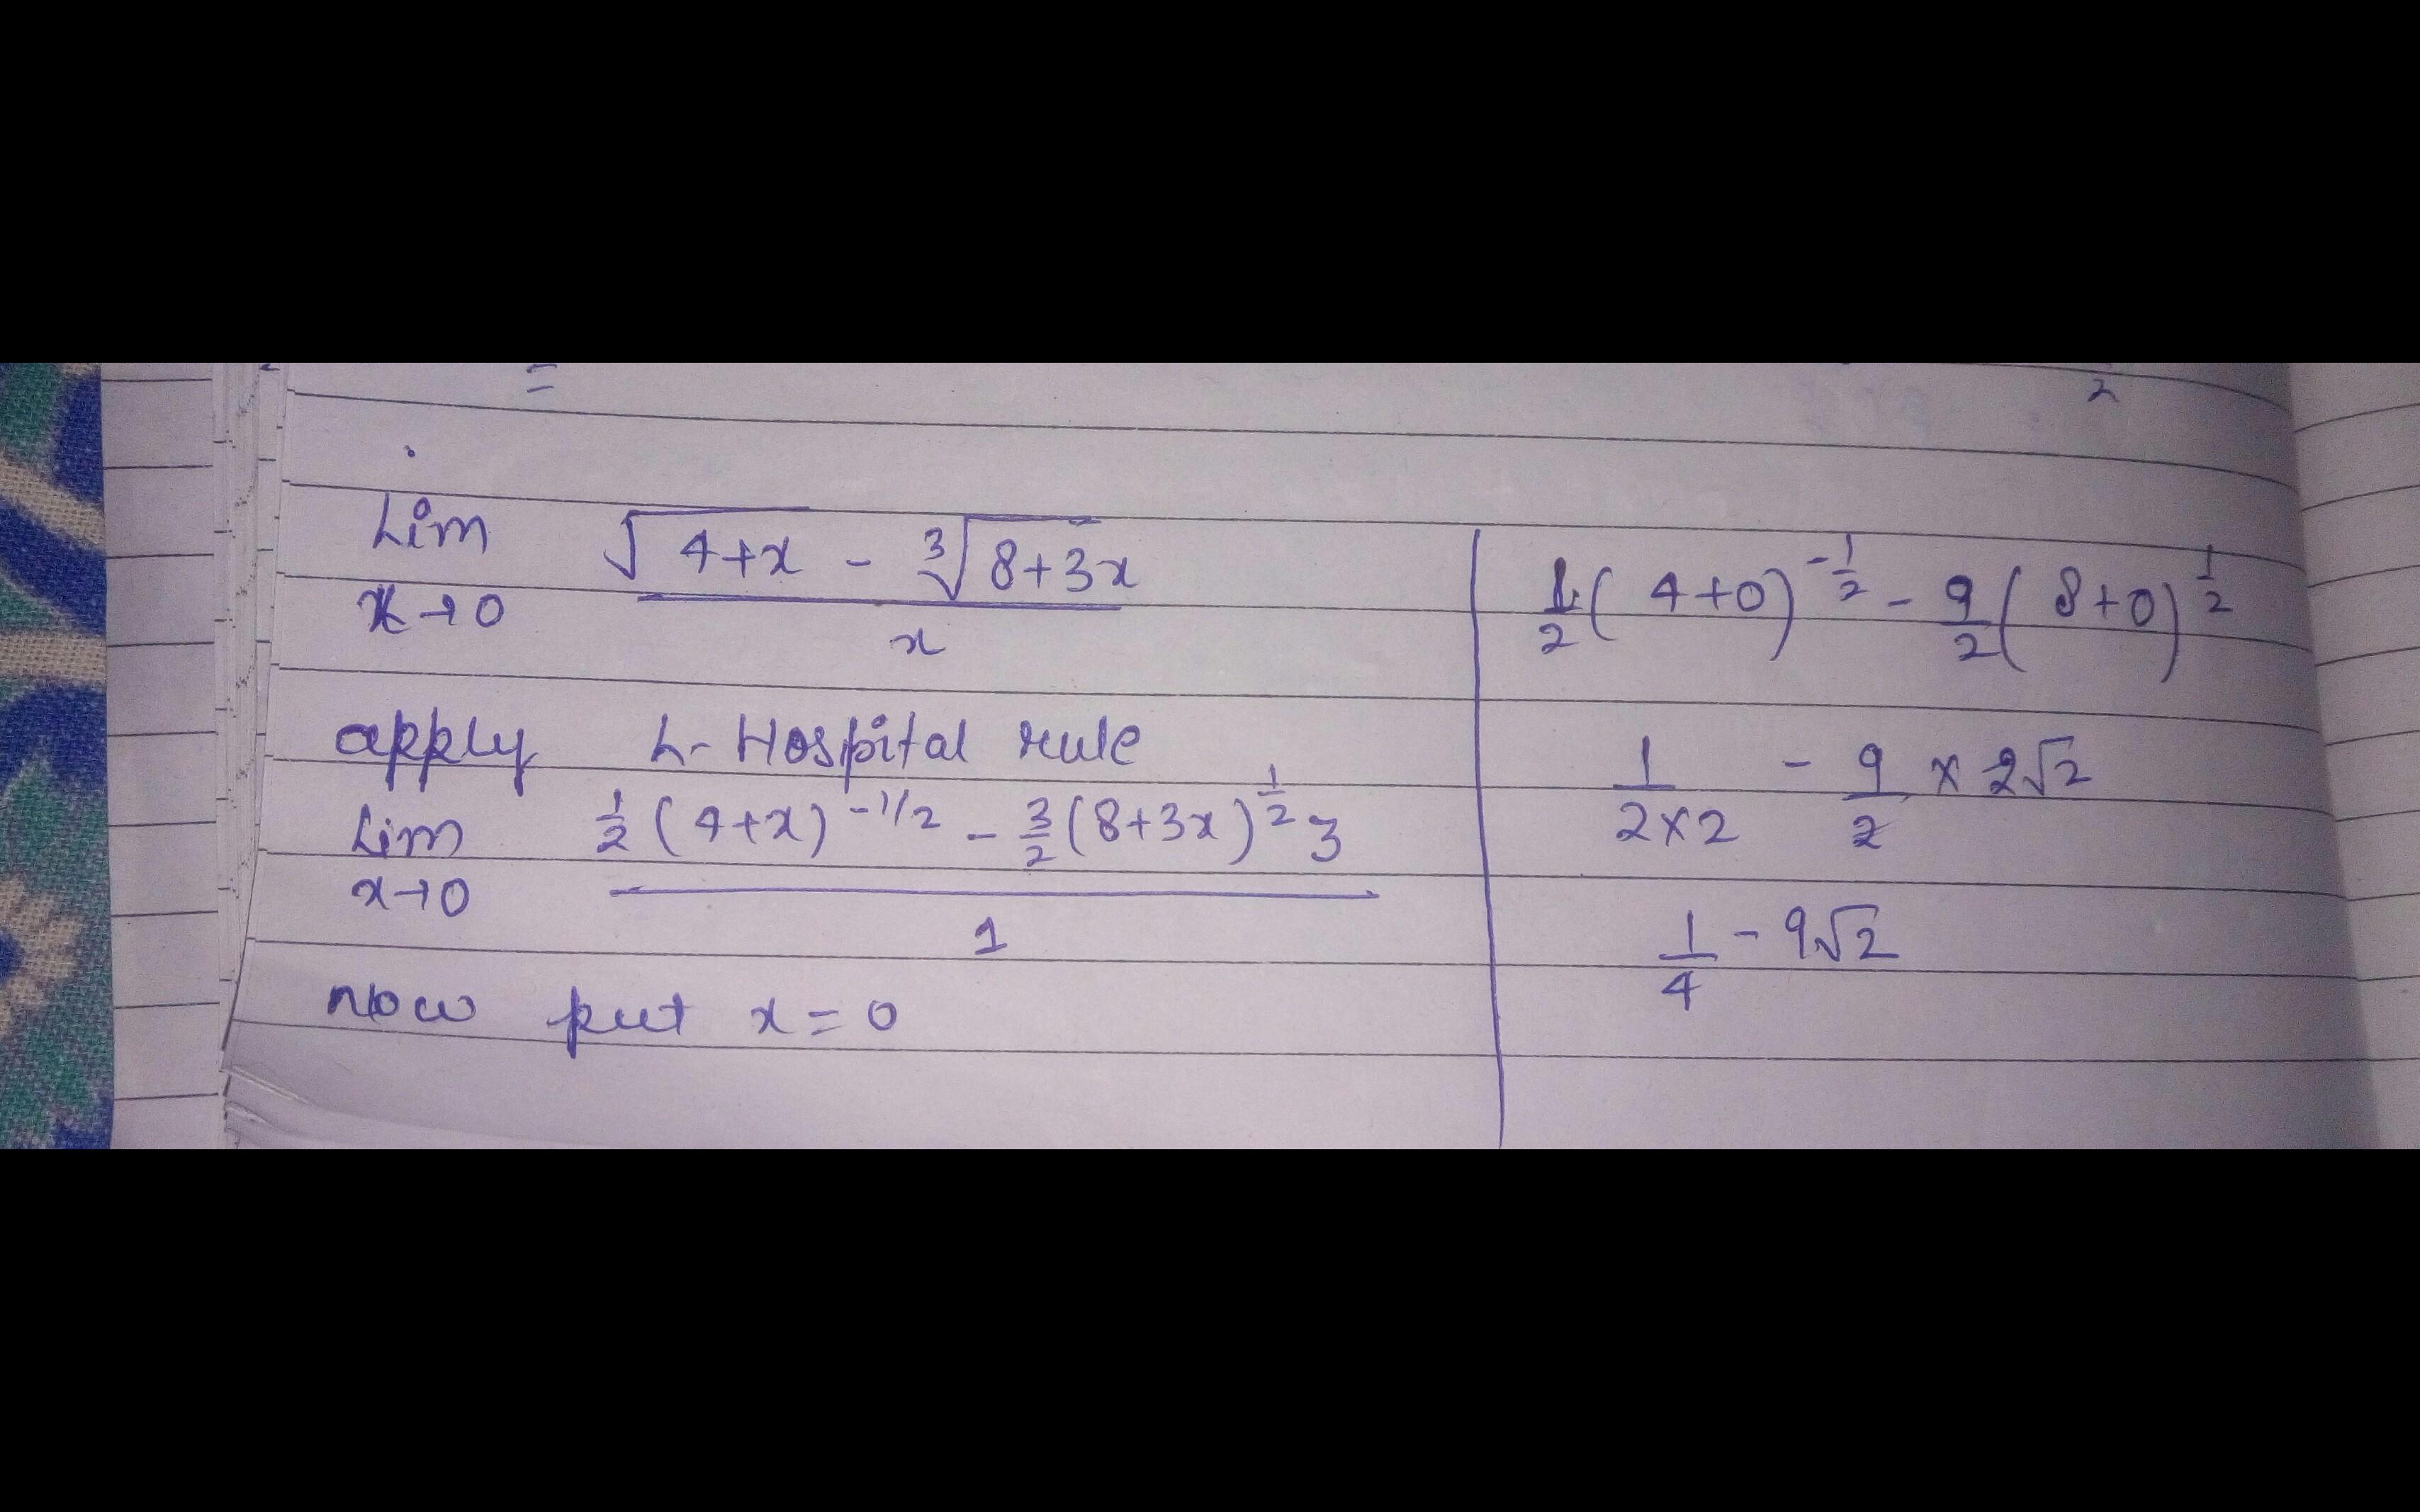 =
2
Lim √4+x - ³√8+3x
x→0 x
apply L-Hospital rule
Lim 1/2 (4+x)^-1/2 - 3/2 (8+3x)^1/2 3
x→0 1
now put x=0
1/2 (4+0)^-1/2 - 9/2 (8+0)^1/2
1/2×2 - 9/2 × 2√2
1/4 - 9√2